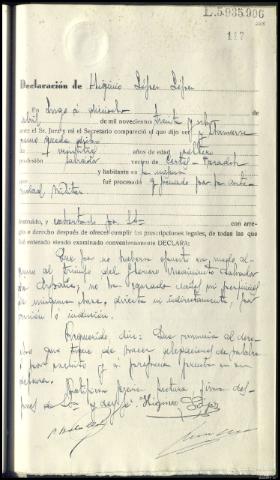 L.5.935.906
117
Declaración de Higinio López López
en Lugo a dieciocho de
abril de mil novecientos treinta y ocho
ante el Sr. Juez y mi el Secretario compareció el que dijo ser y llamarse
como queda dicho
de veintitrés años de edad soltero
profesión labrador vecino de Castel
y habitante en la misma
que fué procesado y penado por la auto-
ridad Militar
instruido, exhortado por S.S. con arre-
glo a derecho después de ofrecer cumplir las prescripciones legales, de todas las que
fué enterado siendo examinado convenientemente DECLARA:
Que por no haberse opuesto en modo al-
guno al triunfo del Glorioso Movimiento Salvador
de España, no ha causado daños ni perjuicios
de ninguna clase, directa ni indirectamente, por
omisión
Requerido, dice: Que renuncia al dere-
cho que tiene de hacer alegaciones de palabra
o por escrito y a proponer prueba en su
Ratifica previa lectura firma des-
pués de S.S. y doy fe.
Higinio López